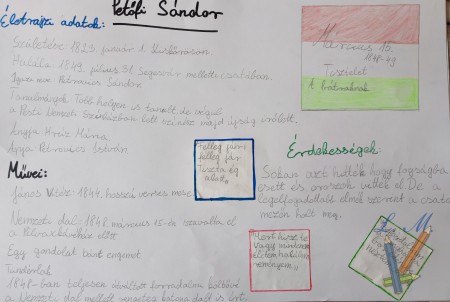 Petőfi Sándor
Életrajzi adatok:
Születése: 1823. január 1. Kiskőrösön.
Halála: 1849. július 31. Segesvár melletti csatában.
Igazi neve: Petrovics Sándor
Tanulmányok: Több helyen is tanult, de végül
a Pesti Nemzeti Színházban lett színész majd újság
Anyja Hrúz Mária
Apja Petrovics István
Művei:
János Vitéz: 1844. hosszú verses mese
Nemzeti dal: 1848. március 15-én szavalta el
a Pilvax kávéház előtt
Egy gondolat bánt engemet
Tündérálom
1848-ban teljesen átváltott forradalmi költővé
a Nemzeti dal mellett rengeteg katona dalt is írt.
Felleg jár
Tiszta ég
alatt
Mért hisz te
vagy mindenem
életem halálom
reményem
Március 15.
1848-49
Tisztelet
A bátraknak
Érdekességek:
Sokan azt hitték hogy fogságba
esett és oroszok vitték el De a
legelfogadottabb elmél szerint a csata
mezőn halt meg.